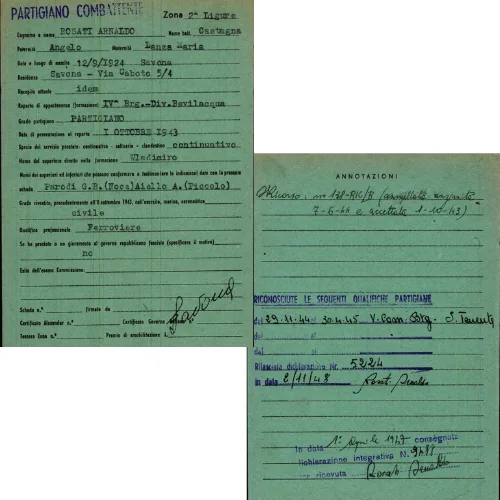 PARTIGIANO COMBATTENTE
Zona 2ª Ligure
Cognome e nome ROSATI ARNALDO Nome batt. Castagna
Paternità Angelo Maternità Lanza Maria
Data e luogo di nascita 12/9/1924 Savona
Residenza Savona - Via Caboto 5/4
Recapito attuale idem
Reparto di appartenenza (formazione) IVª Brg.-Div.Bevilacqua
Grado partigiano PARTIGIANO
Data di presentazione al reparto I OTTOBRE 1943
Specie del servizio prestato: continuativo - saltuario - clandestino continuativo
Nome del superiore diretto nella formazione Wladimiro
Nomi dei superiori ed inferiori che possono confermare e testimoniare le indicazioni date con la presente
scheda Parodi G.B.(Noce)Aiello A.(Piccolo)
Grado rivestito, precedentemente all'8 settembre 1943, nell'esercito, marina, aeronautica
civile
Qualifica professionale Ferroviere
Se ha prestato o no giuramento al governo repubblicano fascista (specificare il motivo)
no
Esito dell'esame Commissione
Scheda n.° firmata da
Certificato Alexander n.° Certificato Governo
Tessera Zona n.° Premio di smobilitazione L.
ANNOTAZIONI
Ricorso: n° 138-RIC/B (annullata
7-6-44 e accettata 1-10-43)
RICONOSCIUTE LE SEGUENTI QUALIFICHE PARTIGIANE
dal 29.11.44 al 30.4.45 V. Com. Brg. - S. Tenente
dal al
dal al
Rilasciata dichiarazione Nr. 5224
in data 2/11/48 Rosati Arnaldo
In data 1° Aprile 1947 consegnata
dichiarazione integrativa N.
per ricevuta Rosati Arnaldo